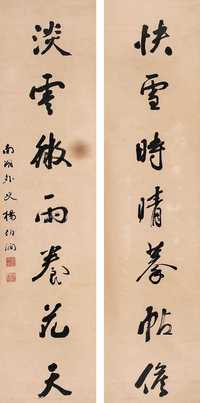 快雪時晴摹帖候
淡雲微雨養花天
南湖外史楊伯潤